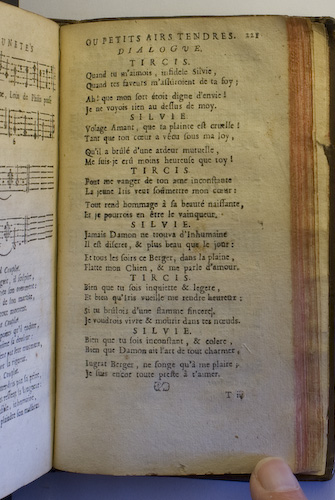 UNITE'S
OU PETITS AIRS TENDRES. 221
DIALOGUE.
TIRCIS.
Quand tu m'aimois, infidele Silvie,
Quand tes faveurs m'assûroient de ta foy;
Ah! que mon sort étoit digne d'envie!
Je ne voyois rien au dessus de moy.
SILVIE.
Volage Amant, que ta plainte est cruelle!
Tant que ton cœur a vêcu sous ma loy,
Qu'il a brûlé d'une ardeur mutuelle,
Me suis-je crû moins heureuse que toy!
TIRCIS.
Pour me vanger de ton ame inconstante
La jeune Iris veut soûmettre mon cœur:
Tout rend hommage à sa beauté naissante,
Et je pourrois en être le vainqueur.
SILVIE.
Jamais Damon ne trouva d'Inhumaine
Il est discret, & plus beau que le jour:
Et tous les soirs ce Berger, dans la plaine,
Flatte mon Chien, & me parle d'amour.
TIRCIS.
Bien que tu sois inquiette & legere,
Et bien qu'Iris vueille me rendre heureux:
Si tu brûlois d'une flamme sincere,
Je voudrois vivre & mourir dans tes nœuds.
SILVIE.
Bien que tu sois inconstant, & colere,
Bien que Damon ait l'art de tout charmer,
Ingrat Berger, ne songe qu'à me plaire,
Je suis encor toute preste à t'aimer.
T iij